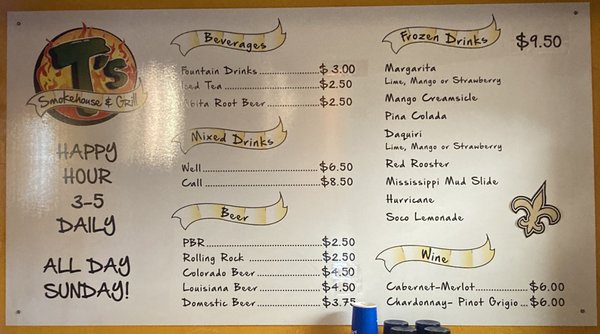 T's
Smokehouse & Grill
HAPPY
HOUR
3-5
DAILY
ALL DAY
SUNDAY!
Beverages
Fountain Drinks $3.00
Iced Tea $2.50
Abita Root Beer $2.50
Mixed Drinks
Well $6.50
Call $8.50
Beer
PBR $2.50
Rolling Rock $2.50
Colorado Beer $4.50
Louisiana Beer $4.50
Domestic Beer $3.75
Frozen Drinks $9.50
Margarita
Lime, Mango or Strawberry
Mango Creamsicle
Pina Colada
Daquiri
Lime, Mango or Strawberry
Red Rooster
Mississippi Mud Slide
Hurricane
Soco Lemonade
Wine
Cabernet-Merlot $6.00
Chardonnay- Pinot Grigio $6.00